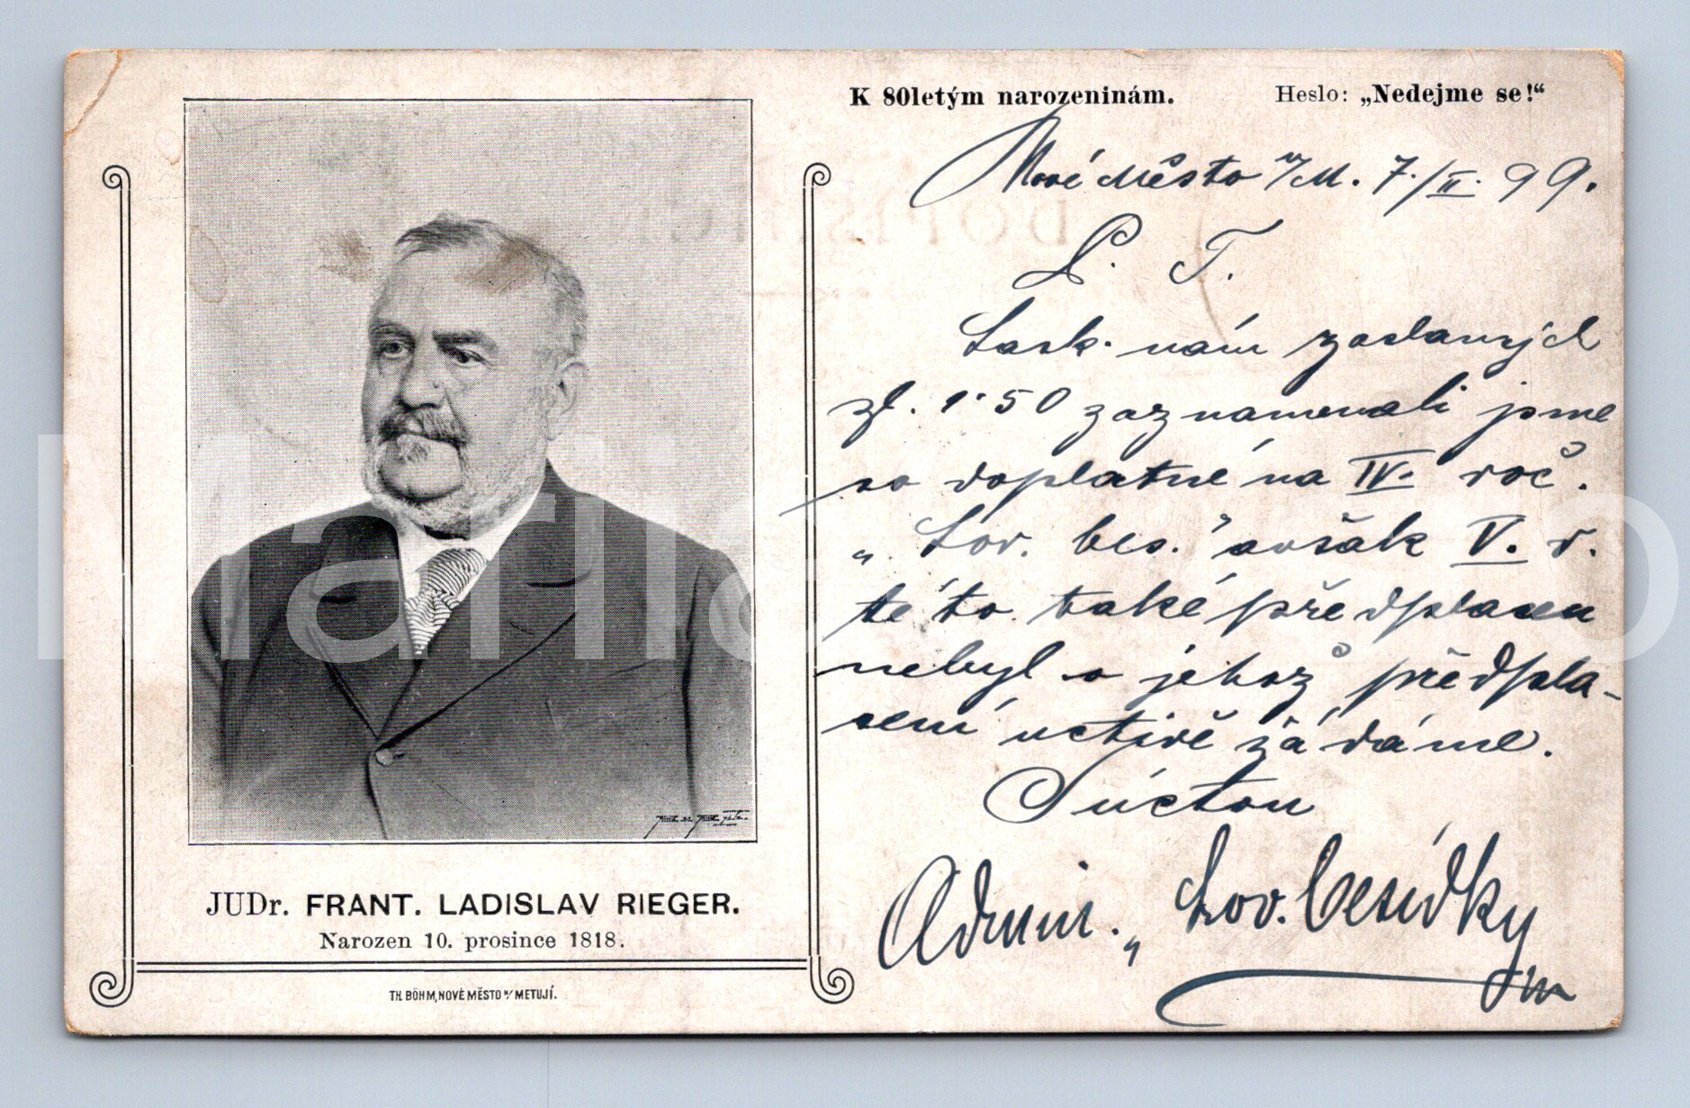 K 80letým narozeninám. Heslo: „Nedejme se!“
Nové Město n/M. 7./II. 99.
P. T.
Lask. nám zaslaných
zl. 1·50 zaznamenali jsme
co doplatné na IV. roč.
„Lov. bes.“ avšak V. r.
této také předplacen
nebyl o jehož předpla-
cení uctivě žádáme.
S úctou
Admin. „Lov. besídky
JUDr. FRANT. LADISLAV RIEGER.
Narozen 10. prosince 1818.
TH. BÖHM, NOVÉ MĚSTO n/ METUJÍ.